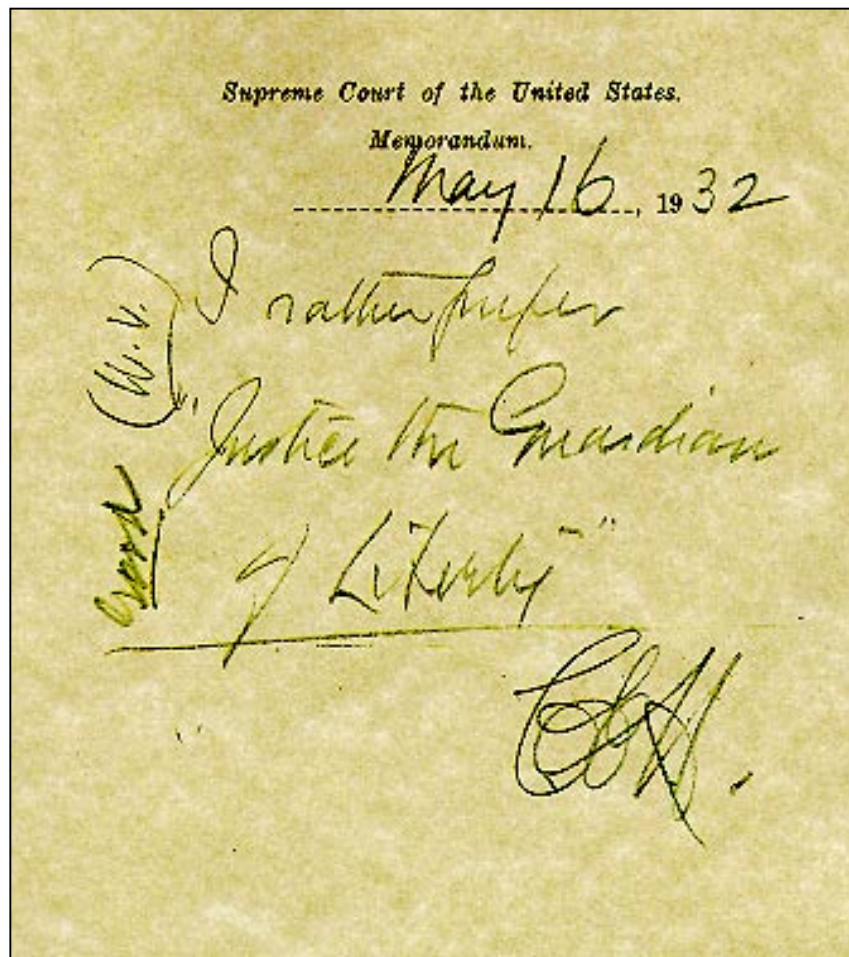 Supreme Court of the United States.
Memorandum.
May 16, 1932
I rather prefer
"Justice the Guardian
of Liberty"
C E H.
Good (W.V.)